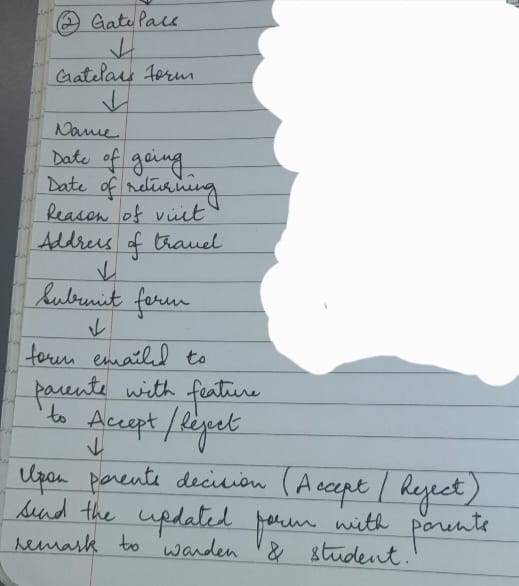 ② GatePass
↓
GatePass form
↓
Name
Date of going
Date of returning
Reason of visit
Address of travel
↓
Submit form
↓
form emailed to
parents with feature
to Accept / Reject
↓
Upon parents decision (Accept / Reject)
send the updated form with parents
remark to warden & student.